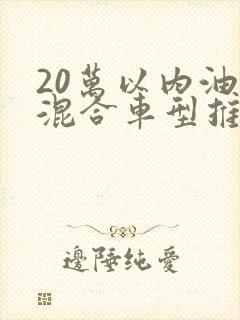 20萬以内油
混合車型推
邊陲纯愛